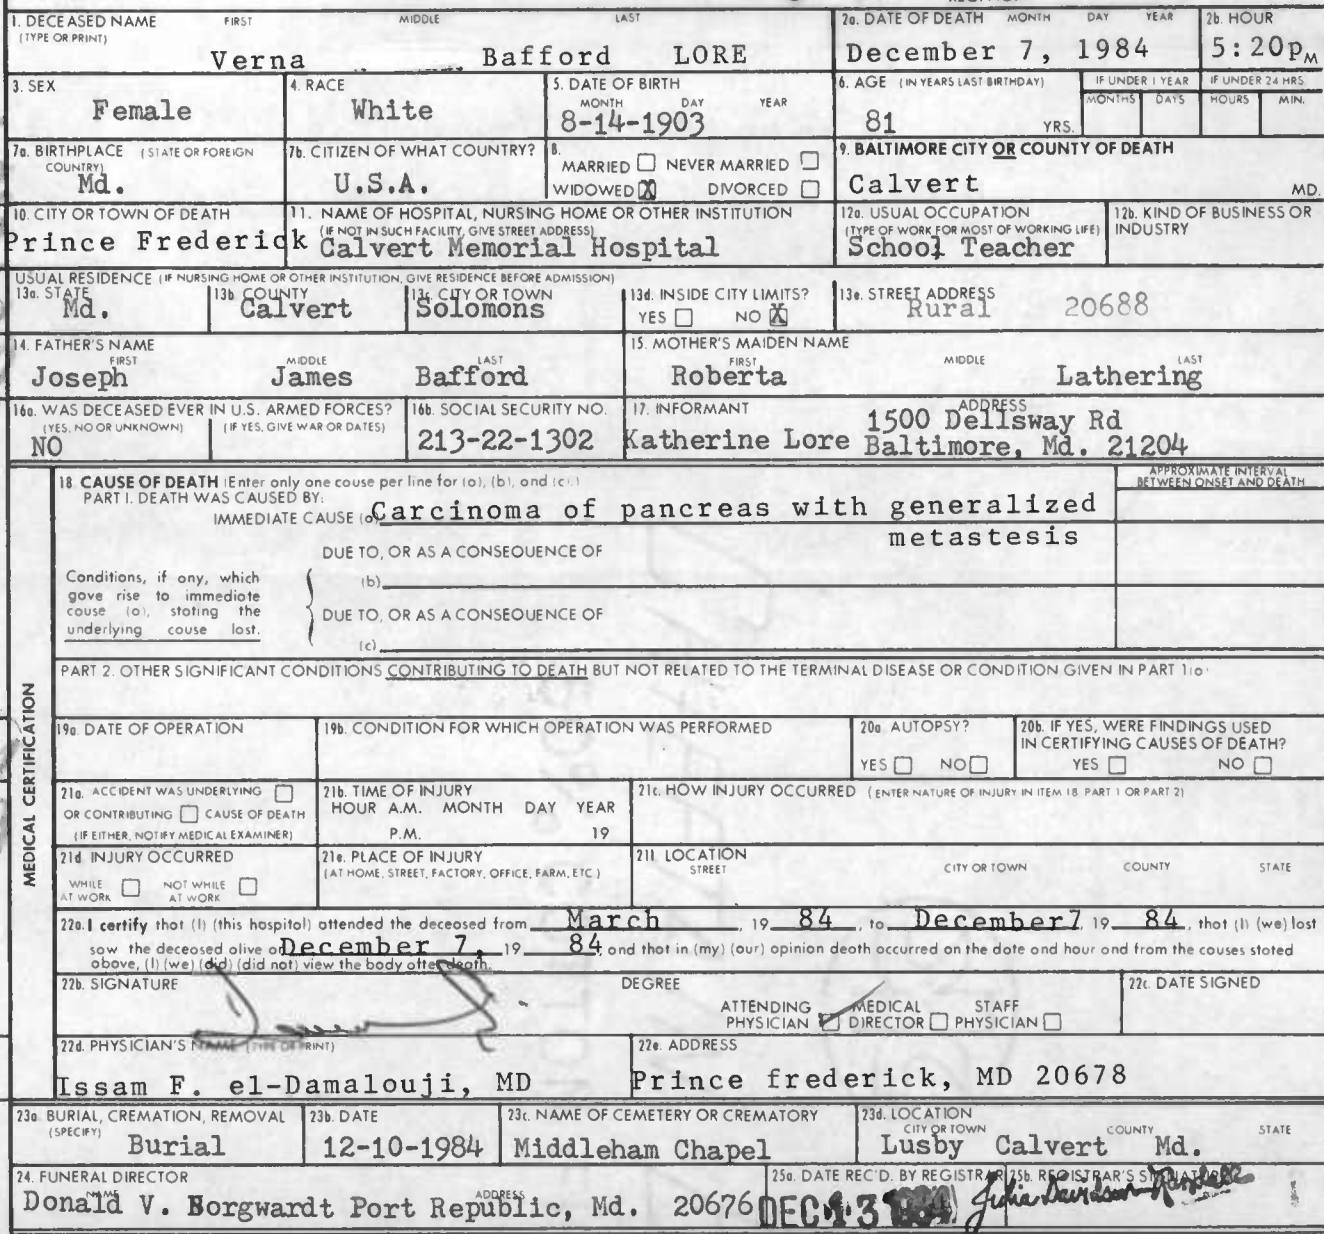 1. DECEASED NAME FIRST MIDDLE LAST
(TYPE OR PRINT)
Verna Bafford LORE
2a. DATE OF DEATH MONTH DAY YEAR
December 7, 1984
2b. HOUR
5:20pM
3. SEX
Female
4. RACE
White
5. DATE OF BIRTH
MONTH DAY YEAR
8-14-1903
6. AGE (IN YEARS LAST BIRTHDAY)
81 YRS.
IF UNDER 1 YEAR
MONTHS DAYS
IF UNDER 24 HRS.
HOURS MIN.
7a. BIRTHPLACE (STATE OR FOREIGN
COUNTRY)
Md.
7b. CITIZEN OF WHAT COUNTRY?
U.S.A.
8.
MARRIED NEVER MARRIED
WIDOWED X DIVORCED
9. BALTIMORE CITY OR COUNTY OF DEATH
Calvert MD.
10. CITY OR TOWN OF DEATH
Prince Frederick
11. NAME OF HOSPITAL, NURSING HOME OR OTHER INSTITUTION
(IF NOT IN SUCH FACILITY, GIVE STREET ADDRESS)
Calvert Memorial Hospital
12a. USUAL OCCUPATION
(TYPE OF WORK FOR MOST OF WORKING LIFE)
School Teacher
12b. KIND OF BUSINESS OR
INDUSTRY
USUAL RESIDENCE (IF NURSING HOME OR OTHER INSTITUTION, GIVE RESIDENCE BEFORE ADMISSION)
13a. STATE
Md.
13b COUNTY
Calvert
13c. CITY OR TOWN
Solomons
13d. INSIDE CITY LIMITS?
YES NO X
13e. STREET ADDRESS
Rural 20688
14. FATHER'S NAME
FIRST MIDDLE LAST
Joseph James Bafford
15. MOTHER'S MAIDEN NAME
FIRST MIDDLE LAST
Roberta Lathering
16a. WAS DECEASED EVER IN U.S. ARMED FORCES?
(YES, NO OR UNKNOWN) (IF YES, GIVE WAR OR DATES)
NO
16b. SOCIAL SECURITY NO.
213-22-1302
17. INFORMANT ADDRESS
1500 Dellsway Rd
Katherine Lore Baltimore, Md. 21204
MEDICAL CERTIFICATION
18 CAUSE OF DEATH (Enter only one cause per line for (a), (b), and (c).)
PART I. DEATH WAS CAUSED BY:
APPROXIMATE INTERVAL
BETWEEN ONSET AND DEATH
IMMEDIATE CAUSE (a) Carcinoma of pancreas with generalized
metastesis
DUE TO, OR AS A CONSEQUENCE OF
Conditions, if any, which
gave rise to immediate
cause (a), stating the
underlying cause last.
(b)
DUE TO, OR AS A CONSEQUENCE OF
(c)
PART 2. OTHER SIGNIFICANT CONDITIONS CONTRIBUTING TO DEATH BUT NOT RELATED TO THE TERMINAL DISEASE OR CONDITION GIVEN IN PART 1(a)
19a. DATE OF OPERATION
19b. CONDITION FOR WHICH OPERATION WAS PERFORMED
20a AUTOPSY?
YES NO
20b. IF YES, WERE FINDINGS USED
IN CERTIFYING CAUSES OF DEATH?
YES NO
21a. ACCIDENT WAS UNDERLYING
OR CONTRIBUTING CAUSE OF DEATH
(IF EITHER, NOTIFY MEDICAL EXAMINER)
21b. TIME OF INJURY
HOUR A.M. MONTH DAY YEAR
P.M. 19
21c. HOW INJURY OCCURRED (ENTER NATURE OF INJURY IN ITEM 18 PART 1 OR PART 2)
21d INJURY OCCURRED
WHILE AT WORK NOT WHILE AT WORK
21e. PLACE OF INJURY
(AT HOME, STREET, FACTORY, OFFICE, FARM, ETC)
21f. LOCATION
STREET CITY OR TOWN COUNTY STATE
22a. I certify that (I) (this hospital) attended the deceased from March, 19 84, to December 7, 19 84, that (I) (we) last
saw the deceased alive on December 7, 19 84, and that in (my) (our) opinion death occurred on the date and hour and from the causes stated
above, (I) (we) (did) (did not) view the body after death.
22b. SIGNATURE DEGREE
ATTENDING PHYSICIAN MEDICAL DIRECTOR STAFF PHYSICIAN
22c. DATE SIGNED
22d. PHYSICIAN'S NAME (TYPE OR PRINT)
Issam F. el-Damalouji, MD
22e. ADDRESS
Prince frederick, MD 20678
23a BURIAL, CREMATION, REMOVAL
(SPECIFY)
Burial
23b. DATE
12-10-1984
23c. NAME OF CEMETERY OR CREMATORY
Middleham Chapel
23d. LOCATION
CITY OR TOWN COUNTY STATE
Lusby Calvert Md.
24. FUNERAL DIRECTOR
NAME ADDRESS
Donald V. Borgwardt Port Republic, Md. 20676
25a. DATE REC'D. BY REGISTRAR
DEC 13 1984
25b. REGISTRAR'S SIGNATURE
Julia Davidson-Randall